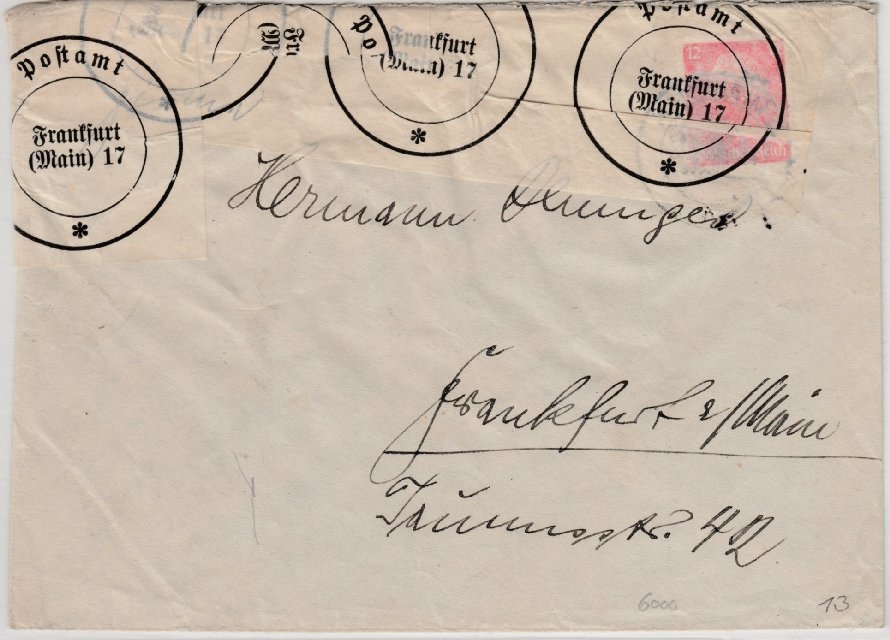 Postamt
Frankfurt
(Main) 17
*
Fr
(M
Po
Frankfurt
(Main) 17
*
Postamt
Frankfurt
(Main) 17
*
12
Hermann
Frankfurt a/Main
Taunusstr. 42
6000
13